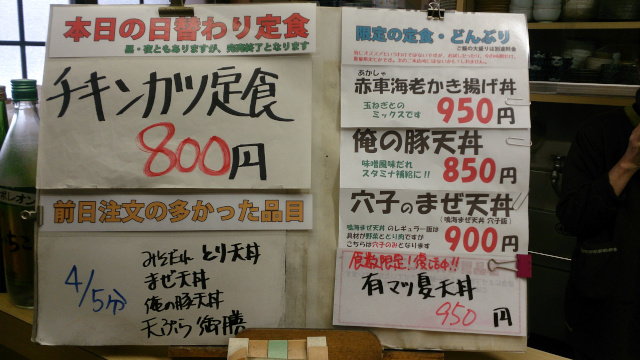 本日の日替わり定食
昼・夜ともありますが、完売終了となります
チキンカツ定食
800円
前日注文の多かった品目
4/5分
みそだれ とり天丼
まぜ天丼
俺の豚天丼
天ぷら御膳
限定の定食・どんぶり
ご飯の大盛りは別途料金
あかしゃ
赤車海老かき揚げ丼
玉ねぎとの
ミックスです
950円
俺の豚天丼
味噌風味だれ
スタミナ補給に!!
850円
穴子のまぜ天丼
(鳴海まぜ天丼 穴子版)
鳴海まぜ天丼 のレギュラー版は
具材が野菜ととり肉ですが
こちらは穴子のみとなります
900円
食数限定!復活中!!
有マツ夏天丼
950円